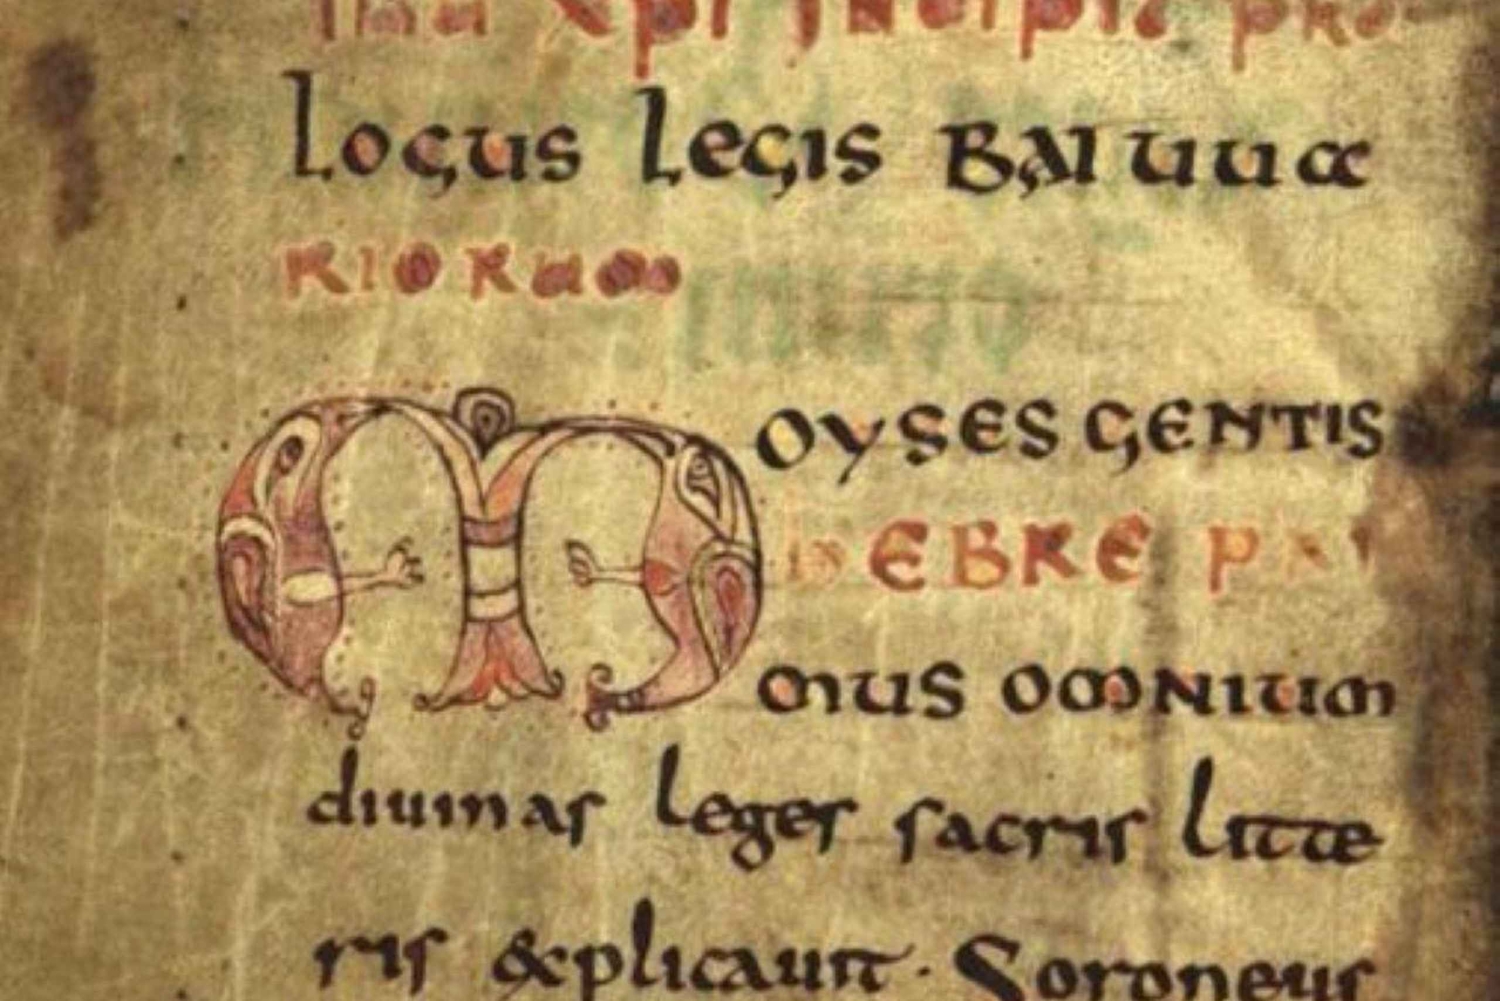 ihu xpi incipit pro
locus legis baiuua
riorum
Moyses gentis
hebre pri
mus omnium
diuinas leges sacris litte
ris explicauit. Foroneus